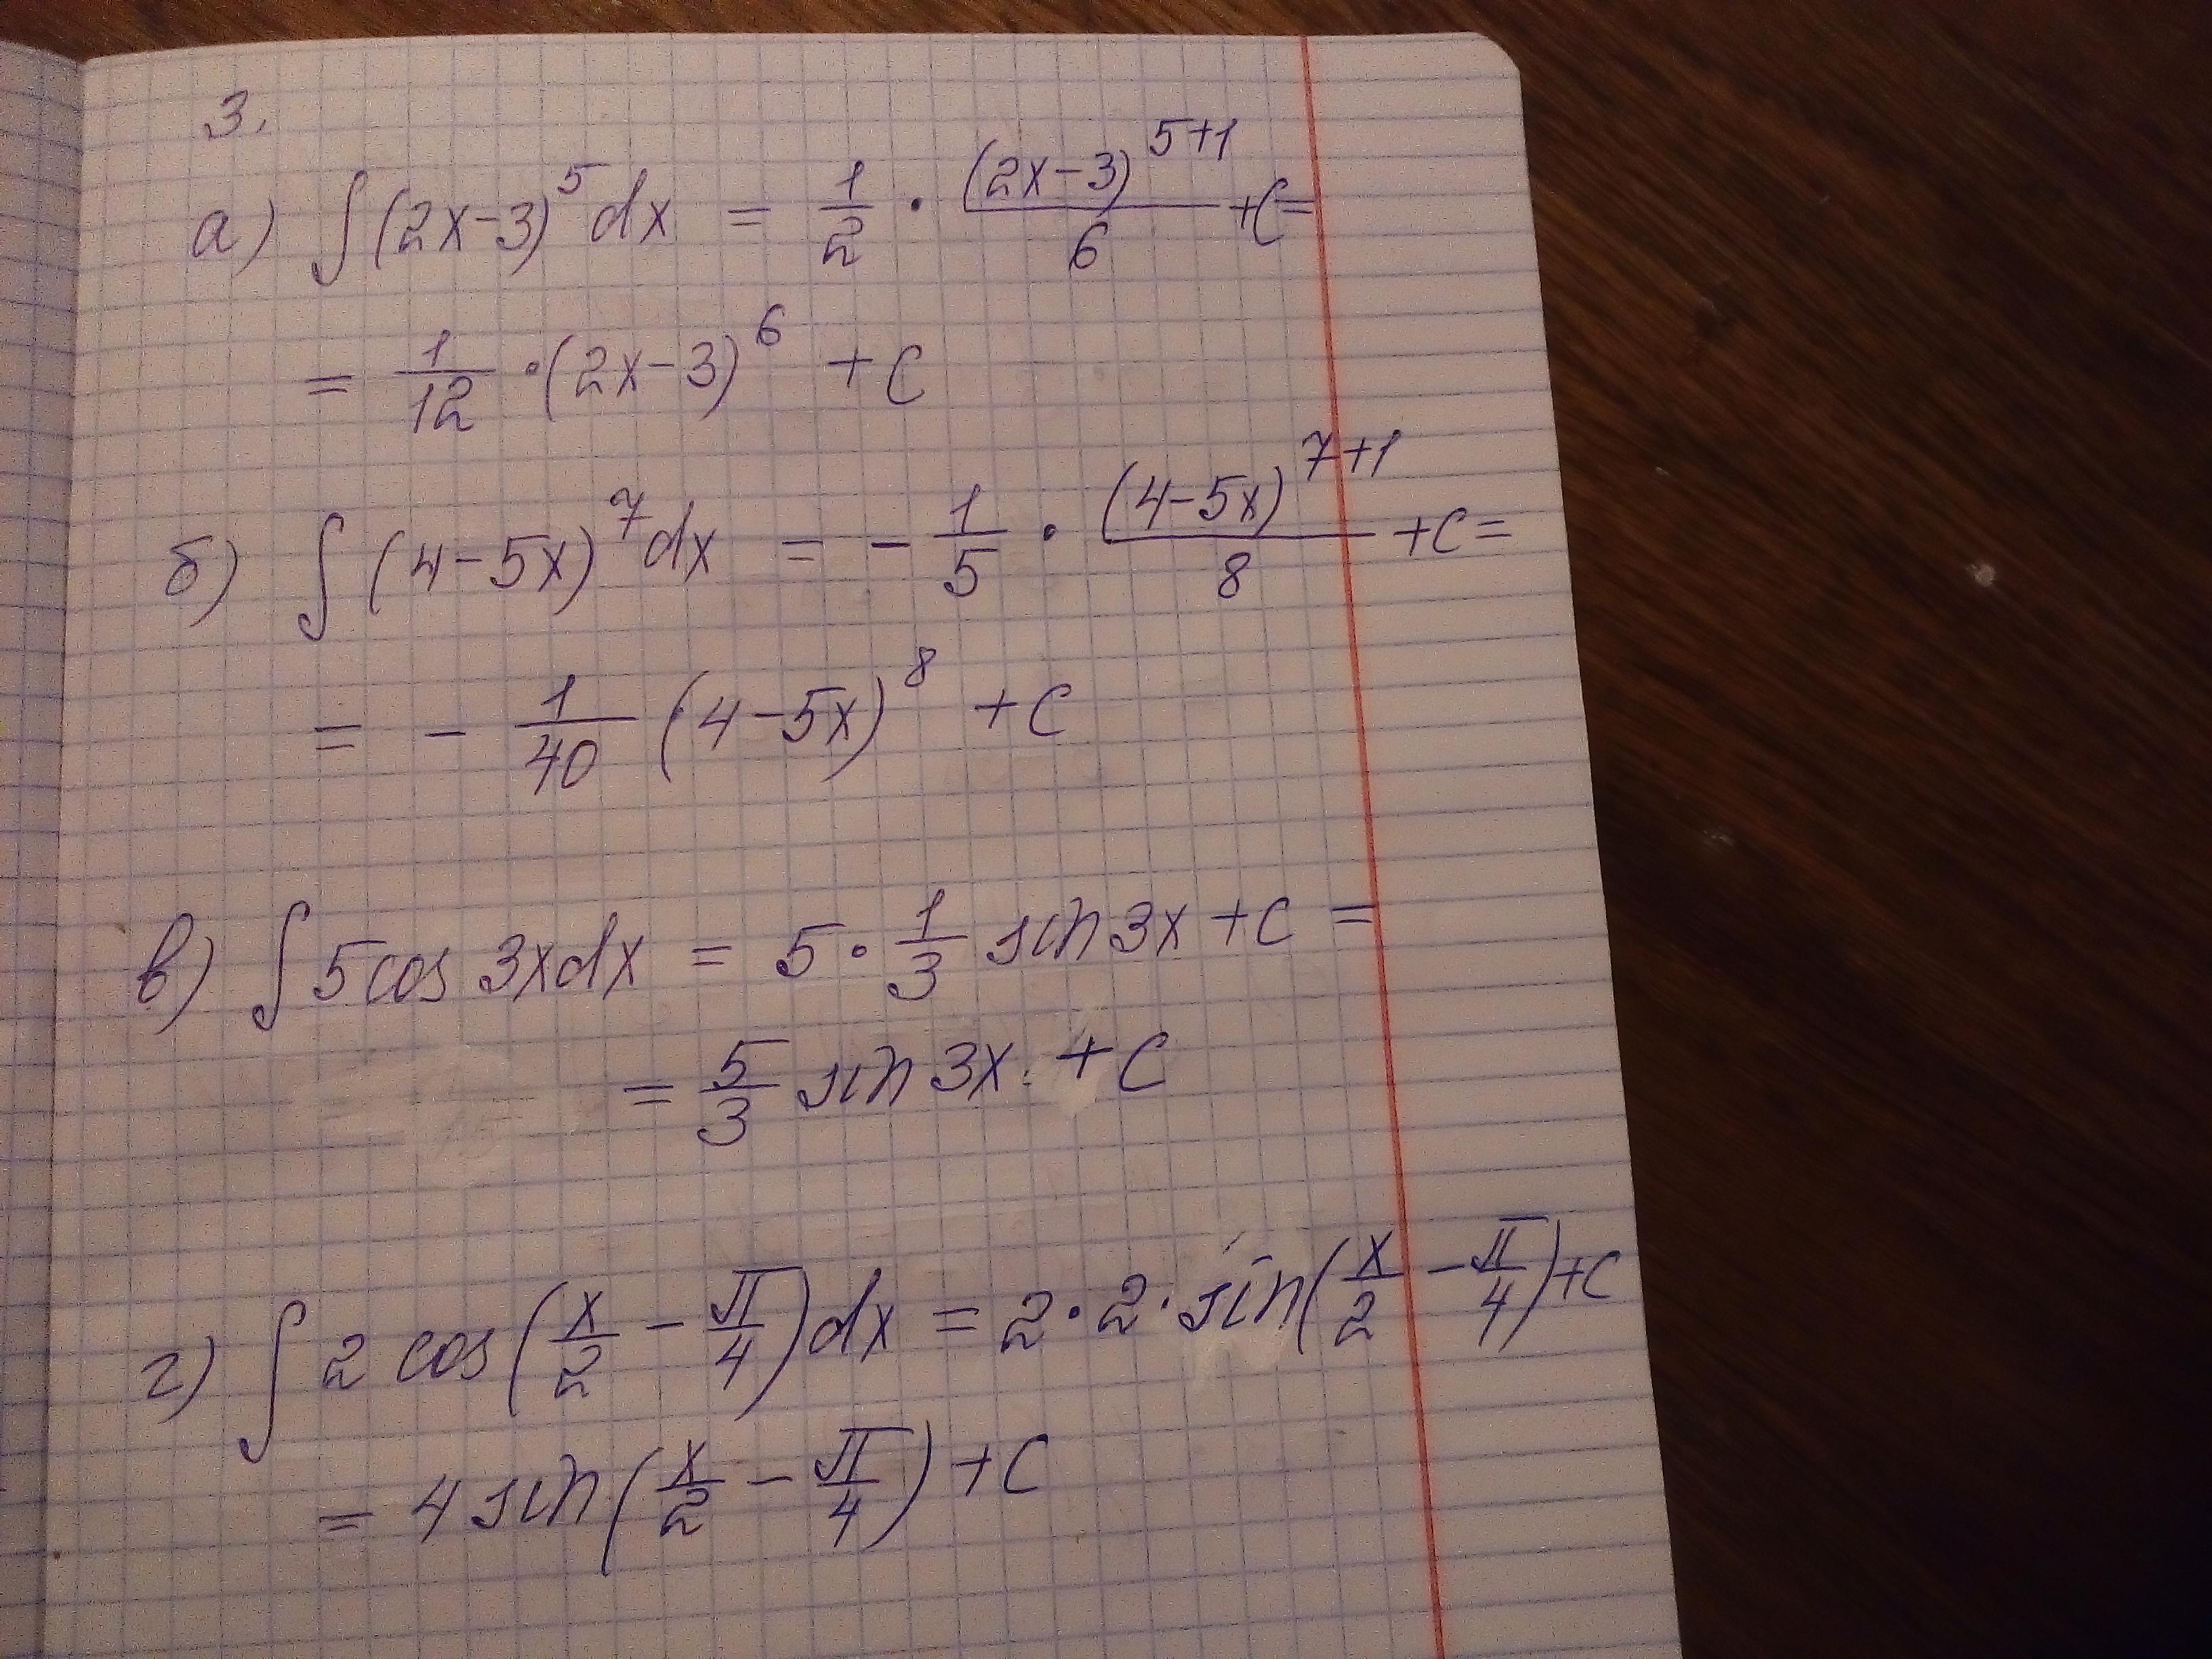 3.
а) ∫(2x-3)⁵dx = 1/2 · (2x-3)⁵⁺¹/6 + C =
= 1/12 · (2x-3)⁶ + C
б) ∫(4-5x)⁷dx = - 1/5 · (4-5x)⁷⁺¹/8 + C =
= - 1/40 (4-5x)⁸ + C
в) ∫5cos 3xdx = 5 · 1/3 sin 3x + C =
= 5/3 sin 3x + C
г) ∫2 cos(x/2 - π/4)dx = 2 · 2 · sin(x/2 - π/4) + C
= 4 sin(x/2 - π/4) + C